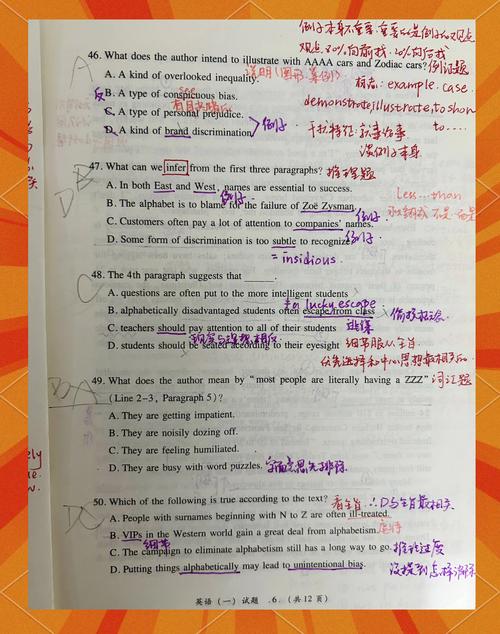 例子本身不重要,重要的是例子的观点
观点 80%向前找 20%向后找
46. What does the author intend to illustrate with AAAA cars and Zodiac cars? 例证题
A
A. A kind of overlooked inequality.
标志: example. case.
反 B. A type of conspicuous bias.
demonstrate, illustrate, to show
C. A type of personal prejudice.
D. A kind of brand discrimination. 例子
干扰特征: 就事论事
to....
谈例子本身
47. What can we infer from the first three paragraphs? 推理题
D
B
A. In both East and West, names are essential to success.
Less...than
B. The alphabet is to blame for the failure of Zoë Zysman. 例子
C. Customers often pay a lot of attention to companies' names. 例子
D. Some form of discrimination is too subtle to recognize
= insidious.
48. The 4th paragraph suggests that ______.
C
A. questions are often put to the more intelligent students
lucky escape
B. alphabetically disadvantaged students often escape from class
C. teachers should pay attention to all of their students 逃课
D. students should be seated according to their eyesight 细节服从主旨
优先选择和中心思想最相关的
49. What does the author mean by "most people are literally having a ZZZ" 词汇题
A
(Line 2-3, Paragraph 5)?
A. They are getting impatient.
B. They are noisily dozing off.
C. They are feeling humiliated.
D. They are busy with word puzzles. 字面意思先排除
50. Which of the following is true according to the text? 看主旨 ∴D与主旨最相关
C
A. People with surnames beginning with N to Z are often ill-treated.
B. VIPs in the Western world gain a great deal from alphabetism.
细节
C. The campaign to eliminate alphabetism still has a long way to go.
D. Putting things alphabetically may lead to unintentional bias.
没提到怎样消除
英语(一)试题 .6. (共12页)